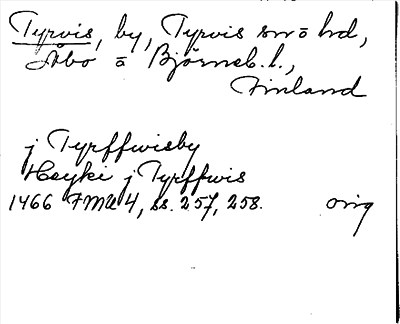 Tyrvis, by, Tyrvis sn o hd,
Åbo o Björneb. l.,
Finland
j Tyrffwisby
Heyki j Tyrffwis
1466 FMU 4, ss. 257, 258. orig